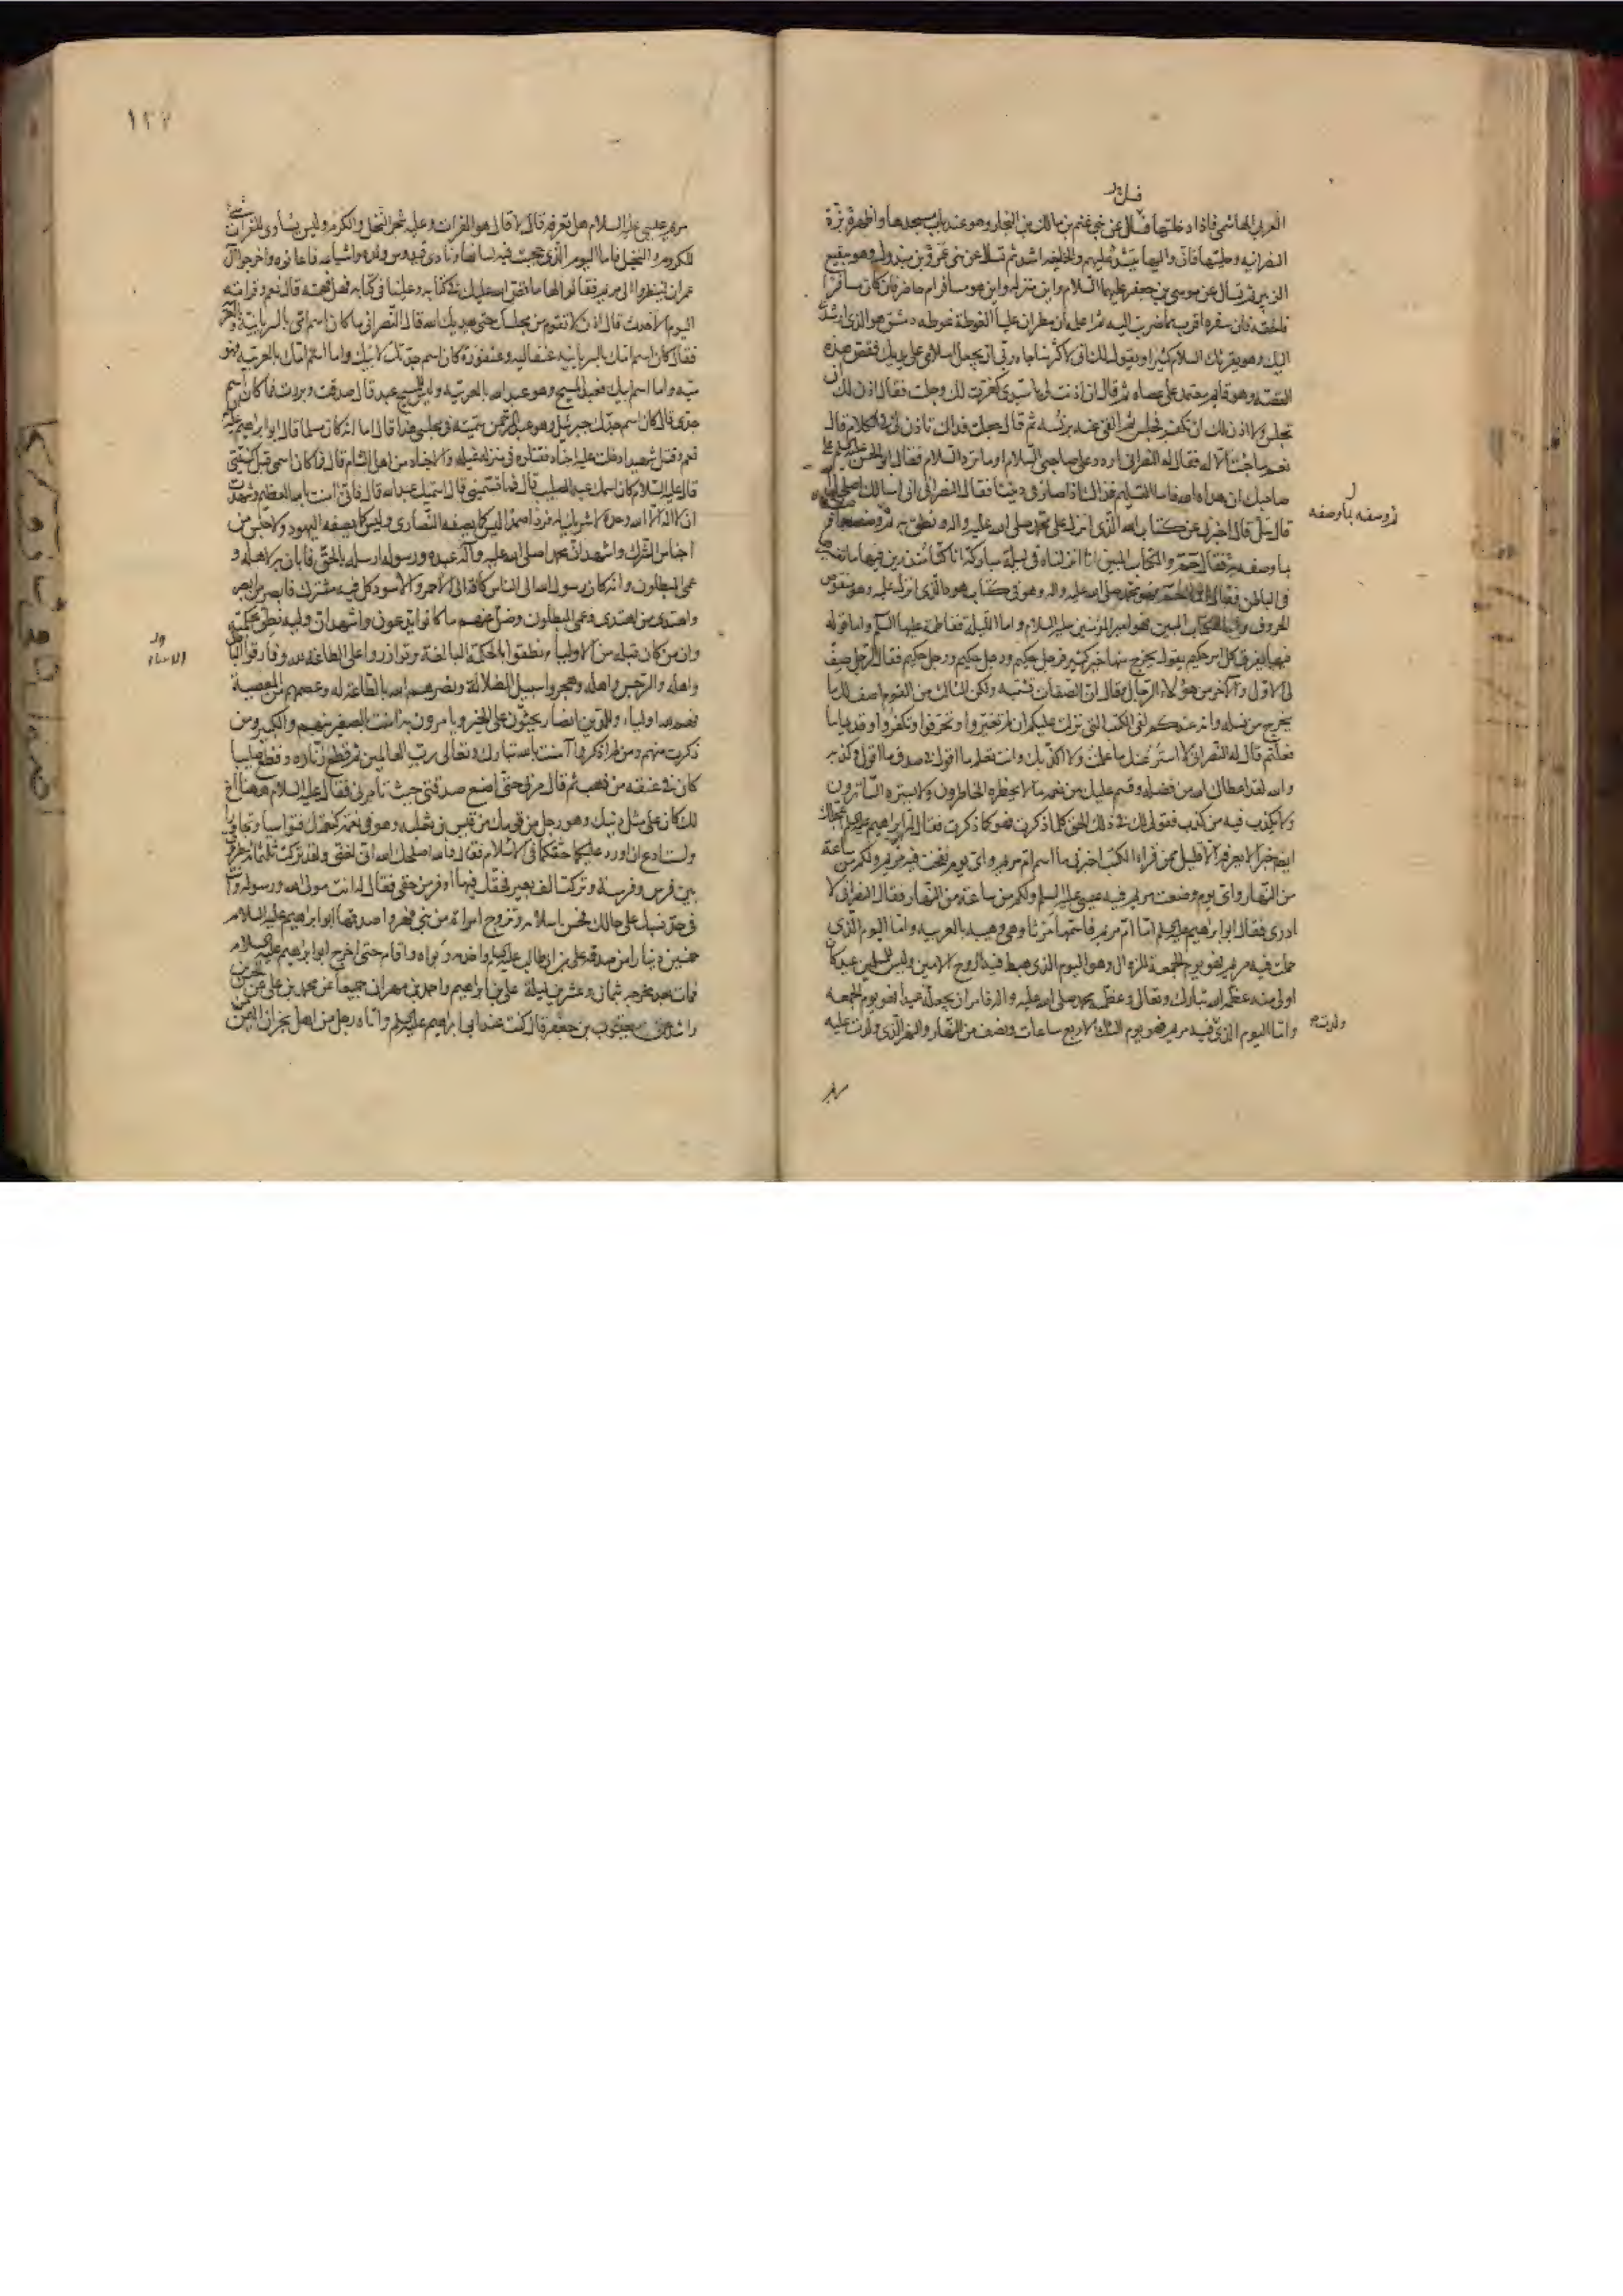 فسئل
العربي الهاشمي فاذا دخلتها فسال عن بني غنم بن مالك بن النجار وهو عند باب مسجدها واظهر بزة
النصرانيه وحليتها فان واليها يتشدد عليهم والخليفه اشد ثم تسال عن بني عمرو بن مبذول وهو ببقيع
الزبير ثم تسال عن موسى بن جعفر عليهما السلام واين منزله واين هو مسافر ام حاضر فان كان مسافرا
فالحقه فان سفره اقرب مما ضربت اليه ثم اعلمه ان مطران عليا الغوطة غوطه دمشق هو الذي ارشدني
اليك وهو يقرئك السلام كثيرا ويقول لك اني لاكثر مناجاه ربي ان يجعل اسلامي على يديك فقص هذه
القصه وهو قائم معتمد على عصاه ثم قال ان اذنت لي يا سيدي كفرت لك وجلست فقال اذن لك ان
تجلس ولا اذن لك ان تكفر فجلس ثم القى عنه برنسه ثم قال جعلت فداك تاذن لي في الكلام قال
نعم ما جئت الا له فقال له النصراني اردد على صاحبي السلام او ما ترد السلام فقال ابو الحسن عليه السلم على
صاحبك ان هداه الله فاما التسليم فذاك اذا صار في ديننا فقال النصراني اني اسالك اصلحك الله
قال سل قال اخبرني عن كتاب الله الذي انزل على محمد صلى الله عليه واله ونطق به ثم وصفه
بما وصفه به فقال حم والكتاب المبين انا انزلناه في ليلة مباركة انا كنا منذرين فيها ما تفسيرها
في الباطن فقال اما حم فهو محمد صلى الله عليه واله وهو في كتاب هود الذي انزل عليه وهو منقوص
الحروف واما الكتاب المبين فهو امير المؤمنين عليه السلام واما الليلة ففاطمة عليها السلم واما قوله
فيها يفرق كل امر حكيم يقول يخرج منها خير كثير فرجل حكيم ورجل حكيم ورجل حكيم فقال الرجل صف
لي الاول والاخر من هؤلاء الرجال فقال ان الصفات تشتبه ولكن الثالث من القوم اصف لك ما
يخرج من نسله وانه عندكم لفي الكتب التي نزلت عليكم ان لم تغيروا وتحرفوا وتكفروا وقديما ما
فعلتم قال له النصراني لا استر عنك ما علمت ولا اكذبك وانت تعلم ما اقول في صدق ما اقول وكذبه
والله لقد اعطاك الله من فضله وقسم عليك من نعمه ما لا يخطره الخاطرون ولا يستره الساترون
ولا يكذب فيه من كذب فقولي لك في ذلك الحق كلما ذكرت فهو كما ذكرت فقال له ابو ابراهيم عليه السلم اعجلك
ايضا خبرا لا يعرفه الا قليل ممن قرا الكتب اخبرني ما اسم ام مريم واي يوم نفخت فيه مريم ولكم من ساعة
من النهار واي يوم وضعت مريم فيه عيسى عليه السلم ولكم من ساعة من النهار فقال النصراني لا
ادري فقال ابو ابراهيم عليه السلم اما ام مريم فاسمها مرثا وهي وهيبه بالعربيه واما اليوم الذي
حملت فيه مريم فهو يوم الجمعة للزوال وهو اليوم الذي هبط فيه الروح الامين وليس للمسلمين عيد كان
اولى منه عظمه الله تبارك وتعالى وعظمه محمد صلى الله عليه واله فامر ان يجعله عيدا فهو يوم الجمعه
واما اليوم الذي فيه مريم فهو يوم الثلثا لاربع ساعات ونصف من النهار والنهر الذي ولدت عليه
ثم وصفه بما وصفه
ولدت
١٢٢
مريم عيسى عليه السلام هل تعرفه قال لا قال هو الفرات وعليه شجر النخل والكرم وليس يساوى بالفرات شيء
للكروم والنخيل فاما اليوم الذي حجبت فيه لسانها ونادى قيدوس ولده واشياعه فاعانوه واخرجوا آل
عمران لينظروا الى مريم فقالوا لها ما قص الله عليك في كتابه وعلينا في كتابه فهل فهمته قال نعم وقراته
اليوم الاحدث قال اذن لا تقوم من مجلسك حتى يهديك الله قال النصراني ما كان اسم امي بالسريانية وبالعربية
فقال كان اسم امك بالسريانيه عنقاليه وعنقورة كان اسم جدتك لابيك واما اسم امك بالعربيه فهو
ميه واما اسم ابيك فعبد المسيح وهو عبد الله بالعربيه وليس للمسيح عبد قال صدقت وبررت فما كان اسم
جدي قال كان اسم جدك جبرئيل وهو عبد الرحمن سميته في مجلسي هذا قال اما انه كان مسلما قال ابو ابرهيم عليه
نعم وقتل شهيدا دخلت عليه اجناد فقتلوه في منزله غيلة والاجناد من اهل الشام قال فما كان اسمي قبل كنيتي
قال عليه السلام كان اسمك عبد الصليب قال فما تسميني قال اسميك عبد الله قال فاني امنت بالله العظيم وشهدت
ان لا اله الا الله وحده لا شريك له فردا صمدا ليس كما يصفه النصارى وليس كما يصفه اليهود ولا جنس من
اجناس الشرك واشهد ان محمدا صلى الله عليه وآله عبده ورسوله ارسله بالحق فابان به لاهله و
عمي المبطلون وانه كان رسول الله الى الناس كافة الى الاحمر والاسود كل فيه مشترك فابصر من ابصر
واهتدى من اهتدى وعمي المبطلون وضل عنهم ما كانوا يدعون واشهد ان وليه نطق بحكمته
وان من كان قبله من الاولياء نطقوا بالحكمة البالغة وتوازروا على الطاعة لله وفارقوا الباطل
واهله والرجس واهله وهجروا سبيل الضلالة ونصرهم الله بالطاعة له وعصمهم من المعصية
فهم لله اولياء وللدين انصار يحثون على الخير ويامرون به امنت بالصغير منهم والكبير ومن
ذكرت منهم ومن لم اذكر وآمنت بالله تبارك وتعالى رب العالمين ثم قطع زناره وقطع صليبا
كان في عنقه من ذهب ثم قال مرني حتى اضع صدقتي حيث تأمرني فقال عليه السلام ههنا اخ
لك كان على مثل دينك وهو رجل من قومك من قيس بن ثعلبه وهو في نعمة كنعمتك فتواسيا وتجاورا
ولست ادع ان اورد عليكما حقكما في الاسلام فقال والله اصلحك الله اني لغني ولقد تركت ثلثمائة طروق
بين فرس وفرسة وتركت الف بعير فحقك فيها اوفر من حقي فقال له انت مولى الله ورسوله وانت
في حد نسبك على حالك فحسن اسلامه وتزوج امراة من بني فهر واصدقها ابو ابراهيم عليه السلام
خمسين دينارا من صدقة علي بن ابي طالب عليه السلم واخدمه وبواه واقام حتى اخرج ابو ابراهيم عليه السلام
فمات بعد مخرجه بثمان وعشرين ليلة علي بن ابراهيم واحمد بن مهران جميعا عن محمد بن علي عن الحسن بن
راشد عن يعقوب بن جعفر قال كنت عند ابي ابراهيم عليه السلم واتاه رجل من اهل نجران اليمن